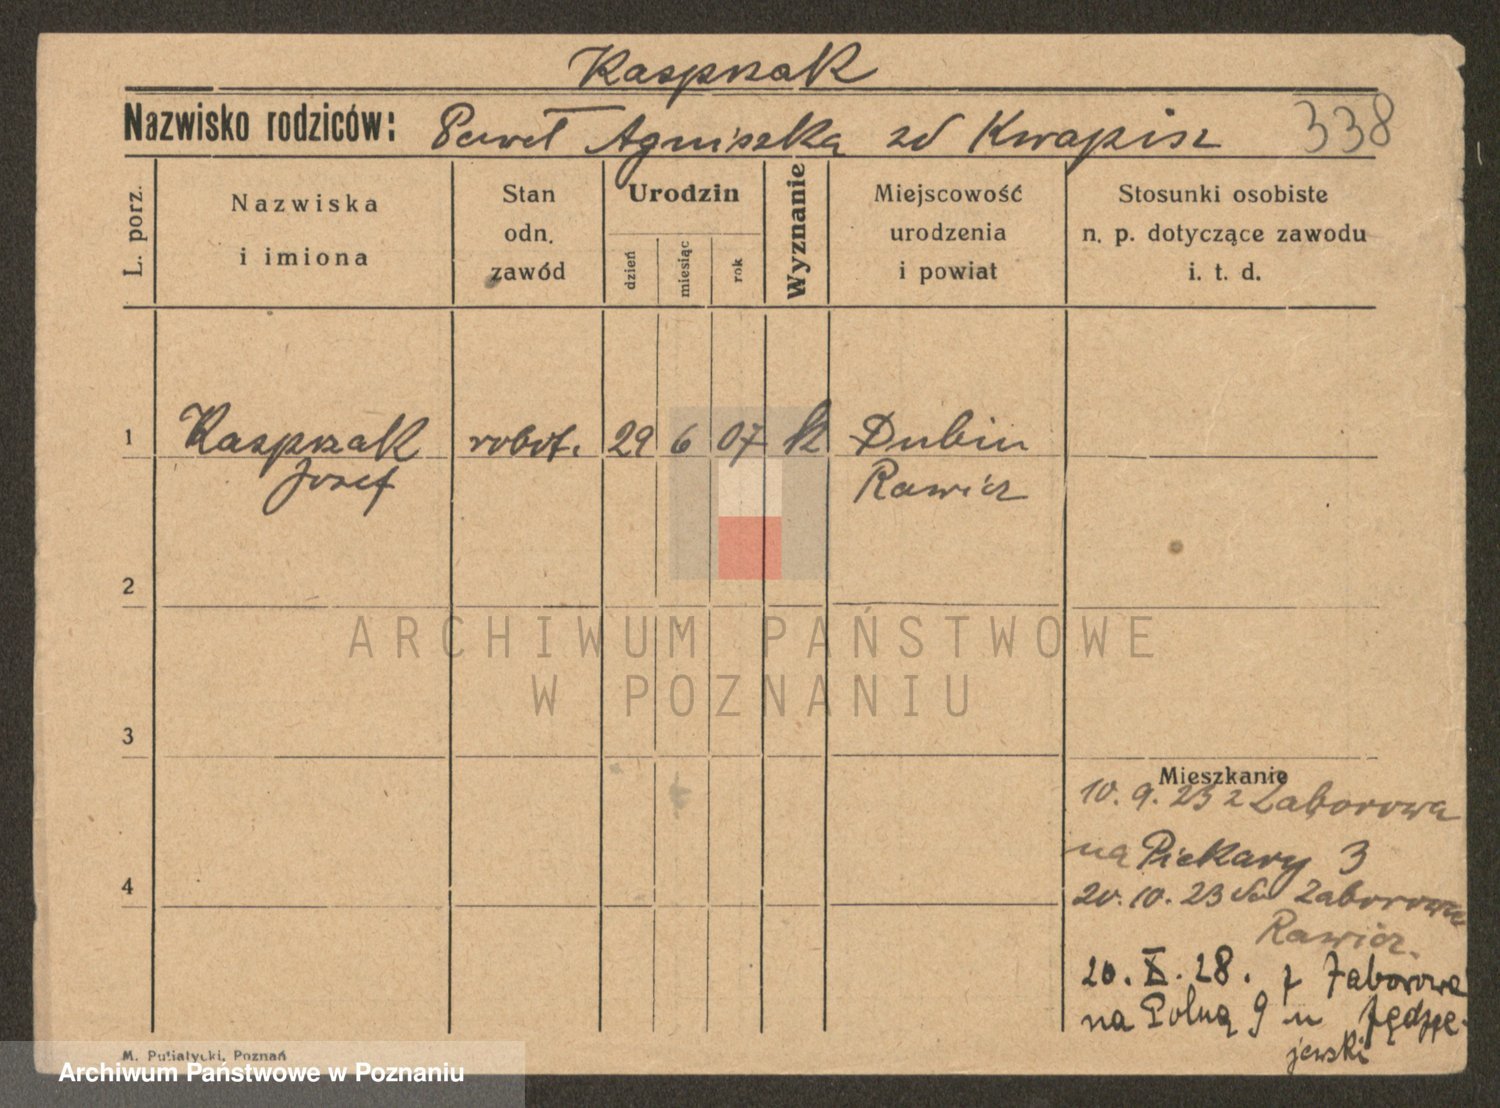 Kasprzak
Nazwisko rodziców: Paweł Agniszka zd Kwapisz 338
L. porz.
Nazwiska
i imiona
Stan
odn.
zawód
Urodzin
dzień
miesiąc
rok
Wyznanie
Miejscowość
urodzenia
i powiat
Stosunki osobiste
n. p. dotyczące zawodu
i. t. d.
1 Kasprzak robot. 29 6 07 k Dubin
Józef Rawicz
2
ARCHIWUM PAŃSTWOWE
W POZNANIU
3
Mieszkanie
10. 9. 23 z Zaborowa
na Piekary 3
4
20. 10. 23 do Zaborowa
Rawicz.
20. X. 28. z Zaborowa
na Polną 9 u
jewski
M. Putiatycki, Poznań
Archiwum Państwowe w Poznaniu